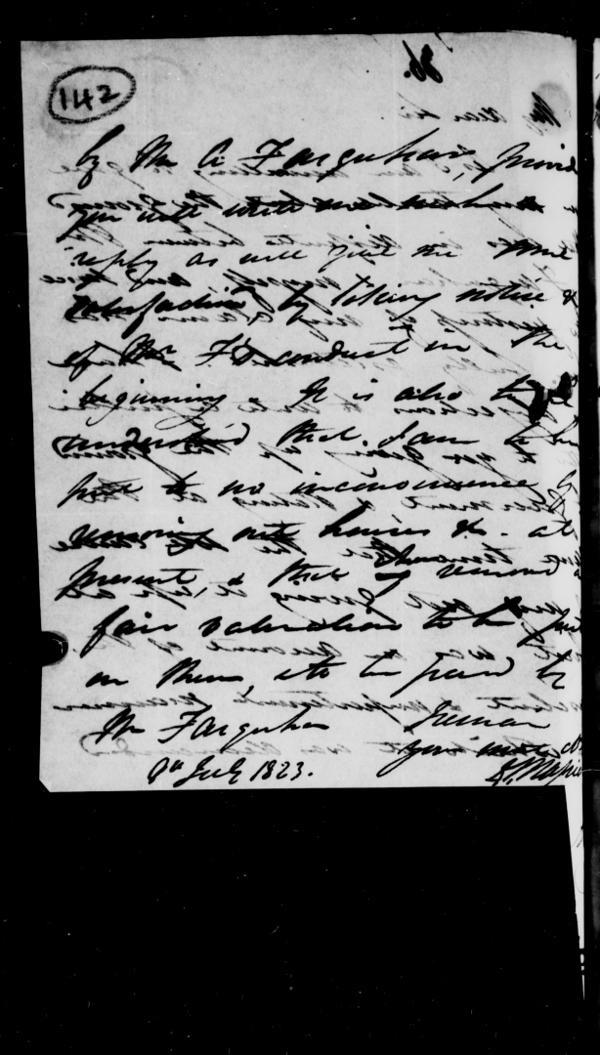 142
86.
by Mr A Farquhar, provid
you will write
reply as will give me
satisfaction by taking notice
of Mr F's conduct in the
beginning. It is also to be
understood that I am to be
put to no inconvenience by
removing houses &c. at
present & that if removed a
fair valuation to be put
on them, & to be paid by
Mr Farquhar I remain
Your most
9th July 1823.